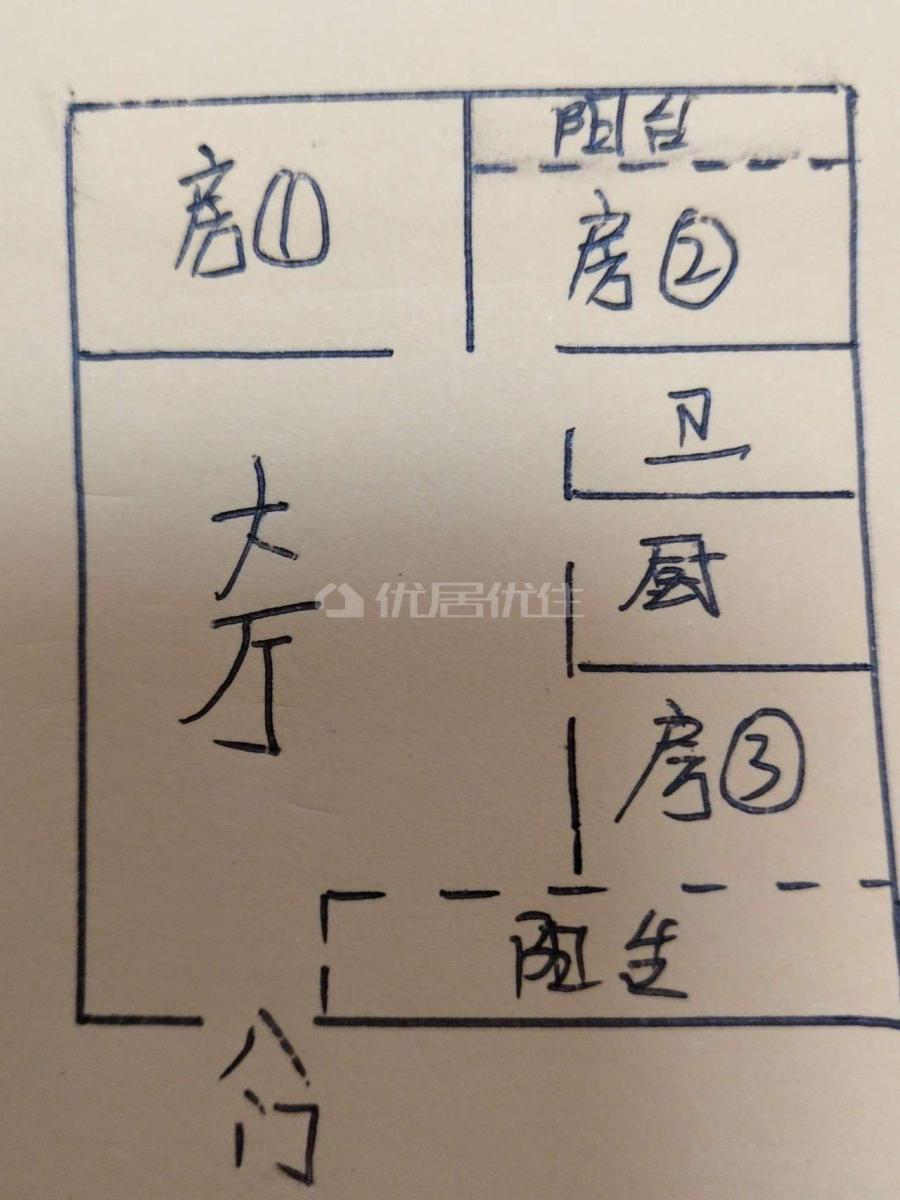 阳台
房①
房②
卫
大厅
厨
优居优住
房③
阳台
入门